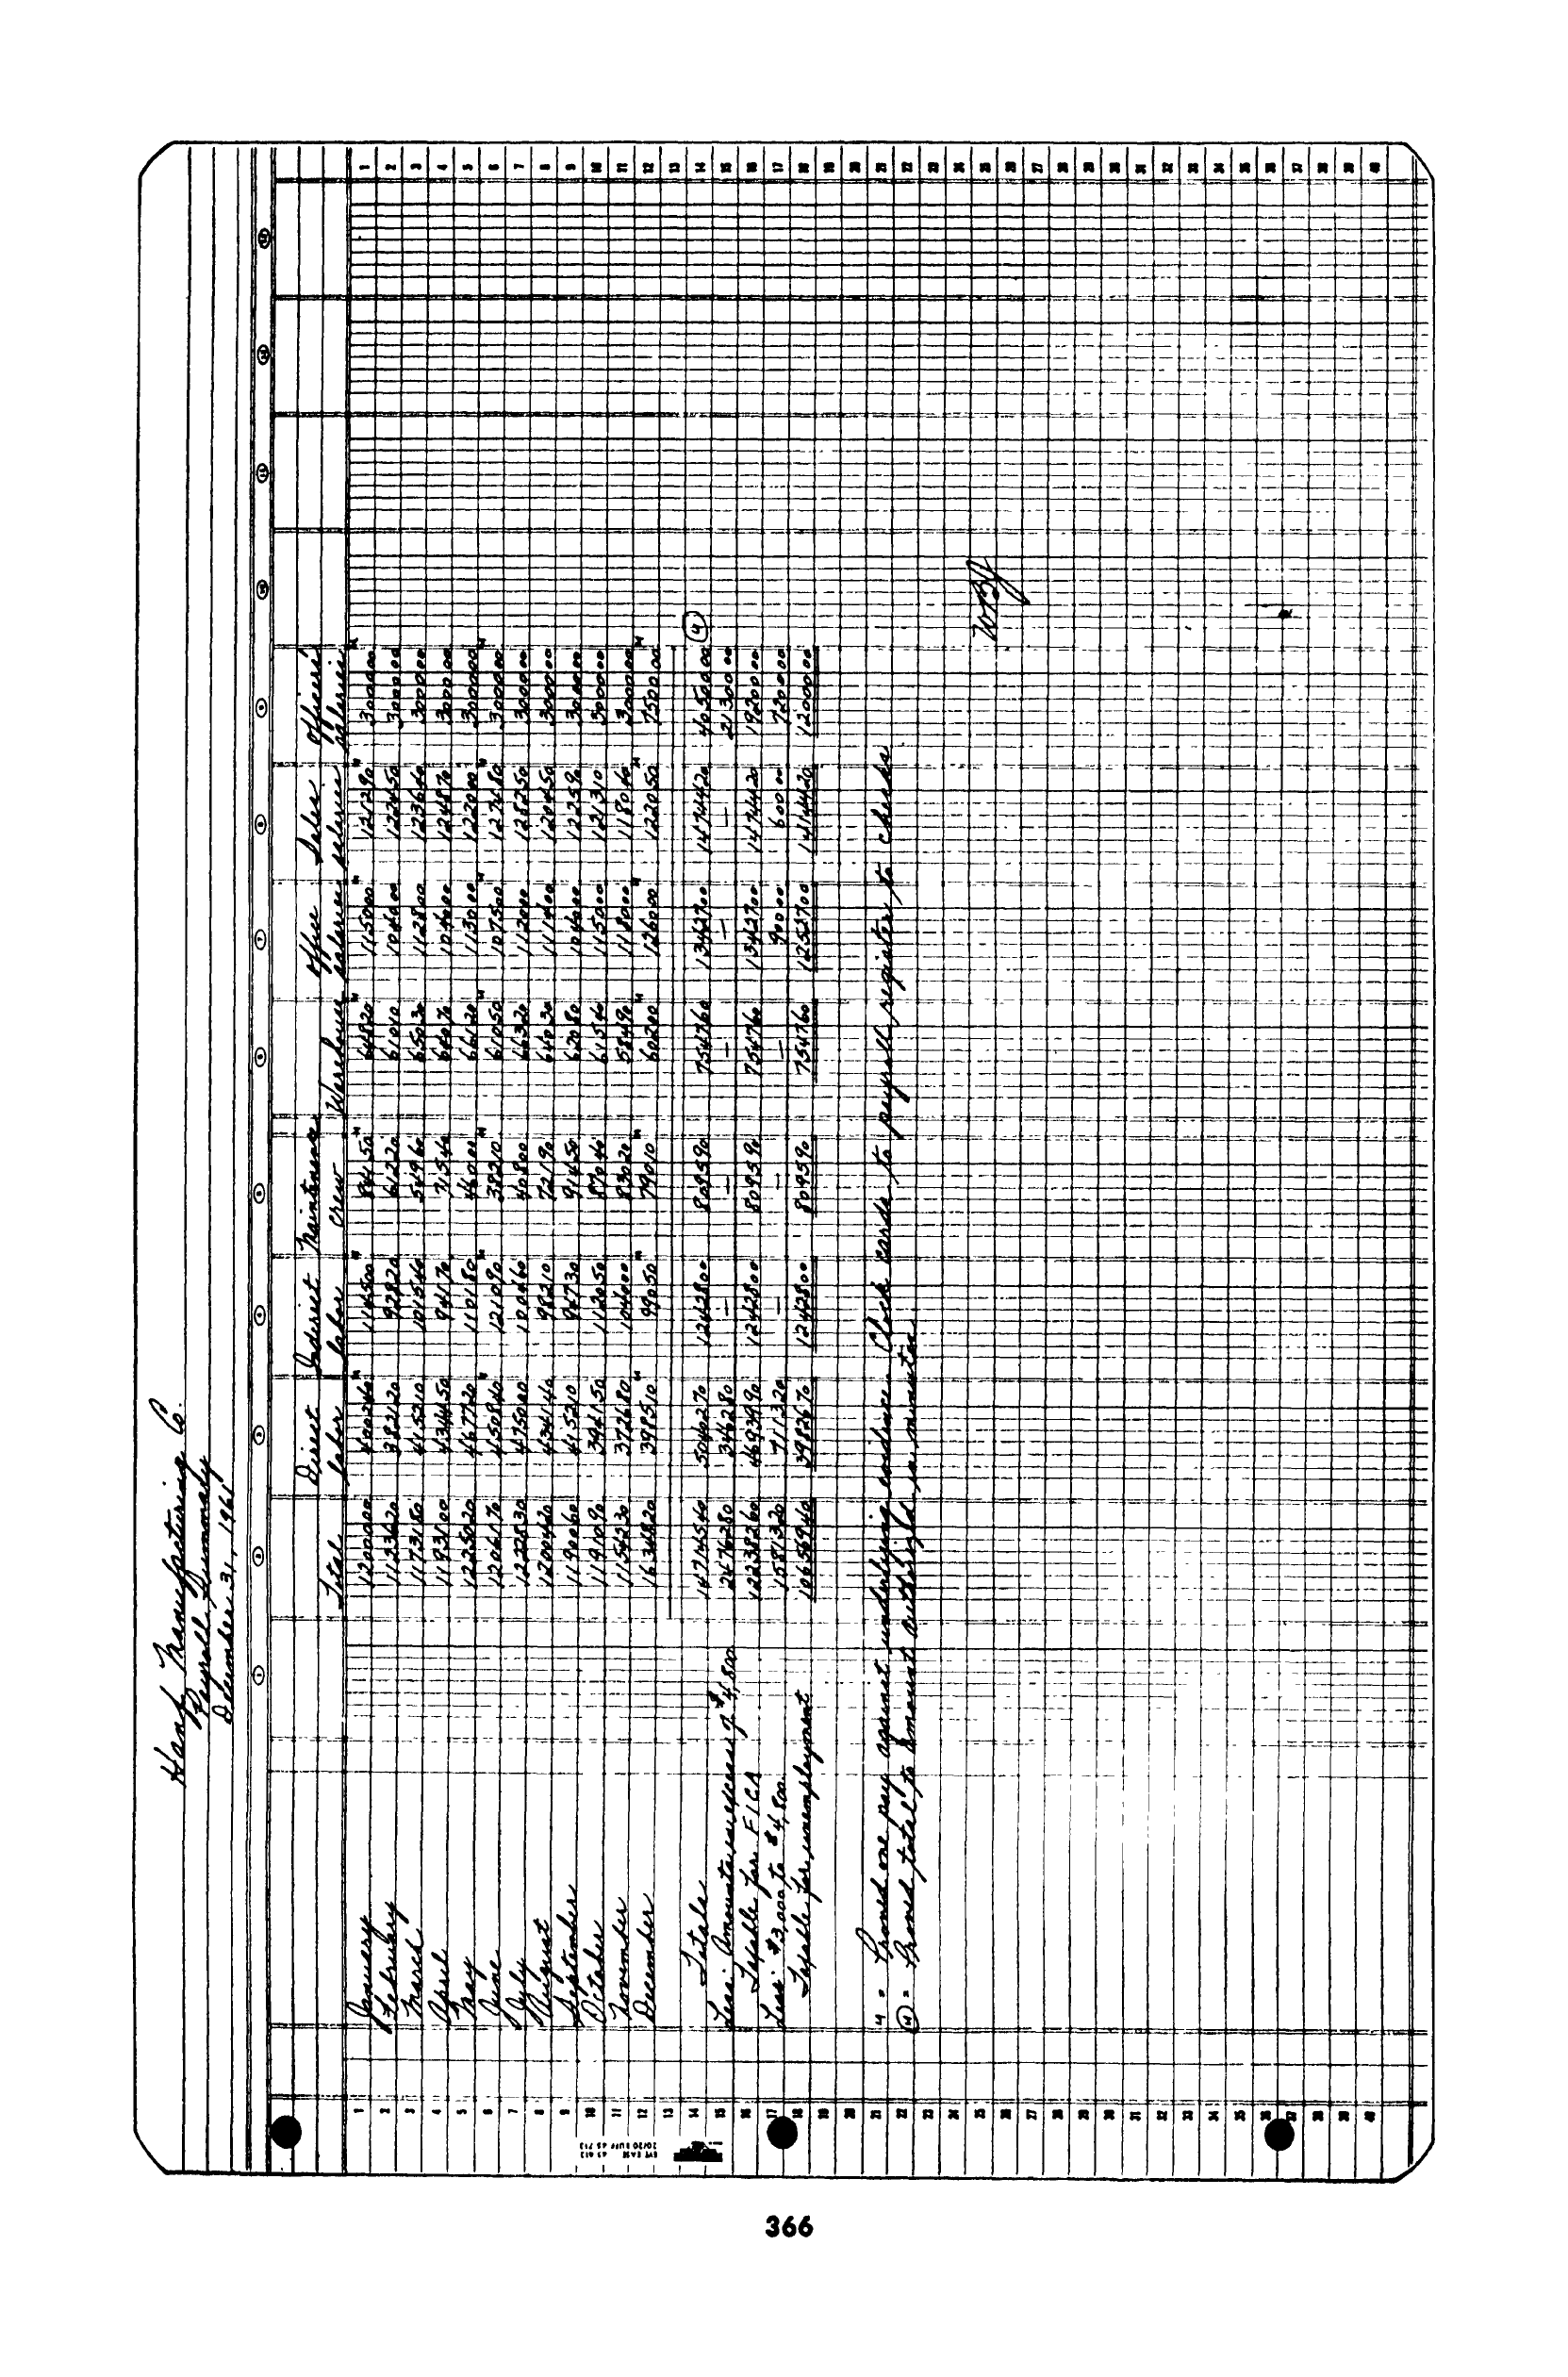 Hans Manufacturing Co.
Payroll Summary
December 31, 1961
Total Direct labor Indirect labor Maintenance crew Warehouse Office salaries Sales salaries Officers' salaries
1 January 12000 00 4002 40 1145 00 841 50 648 20 1150 00 1212 90 3000 00 1
2 February 11236 20 3821 20 928 20 612 20 610 10 1040 00 1224 50 3000 00 2
3 March 11731 80 4152 10 1015 40 549 60 650 30 1128 00 1236 40 3000 00 3
4 April 11931 00 4344 50 941 70 715 40 640 70 1040 00 1248 70 3000 00 4
5 May 12250 20 4677 20 1101 80 460 00 661 20 1130 00 1220 00 3000 00 5
6 June 12061 70 4508 40 1210 90 382 10 610 50 1075 00 1274 80 3000 00 6
7 July 12228 30 4750 00 1004 60 408 00 663 20 1120 00 1282 50 3000 00 7
8 August 12004 20 4341 40 982 10 721 90 640 30 1114 00 1204 50 3000 00 8
9 September 11900 60 4152 10 947 30 914 50 620 80 1040 00 1225 90 3000 00 9
10 October 11910 90 3941 50 1120 50 870 40 615 40 1150 00 1213 10 3000 00 10
11 November 11542 30 3726 80 1040 00 830 20 584 90 1180 00 1180 40 3000 00 11
12 December 16348 20 3985 10 990 50 790 10 602 00 1260 00 1220 50 7500 00 12
13 13
14 Totals 147145 40 50402 70 12428 00 8095 90 7547 60 13427 00 14744 20 40500 00 (4) 14
15 Less: Amounts in excess of $4,800 24762 80 3462 80 — — — — — 21300 00 15
16 Taxable for FICA 122382 60 46939 90 12428 00 8095 90 7547 60 13427 00 14744 20 19200 00 16
17 Less: $3,000 to $4,800 15813 20 7113 20 — — — 900 00 600 00 7200 00 17
18 Taxable for unemployment 106569 40 39826 70 12428 00 8095 90 7547 60 12527 00 14144 20 12000 00 18
4 = Proved one pay against underlying evidence - Clock cards to payroll register, to checks
(4) = Proved total to amount authorized in minutes
WBY
366